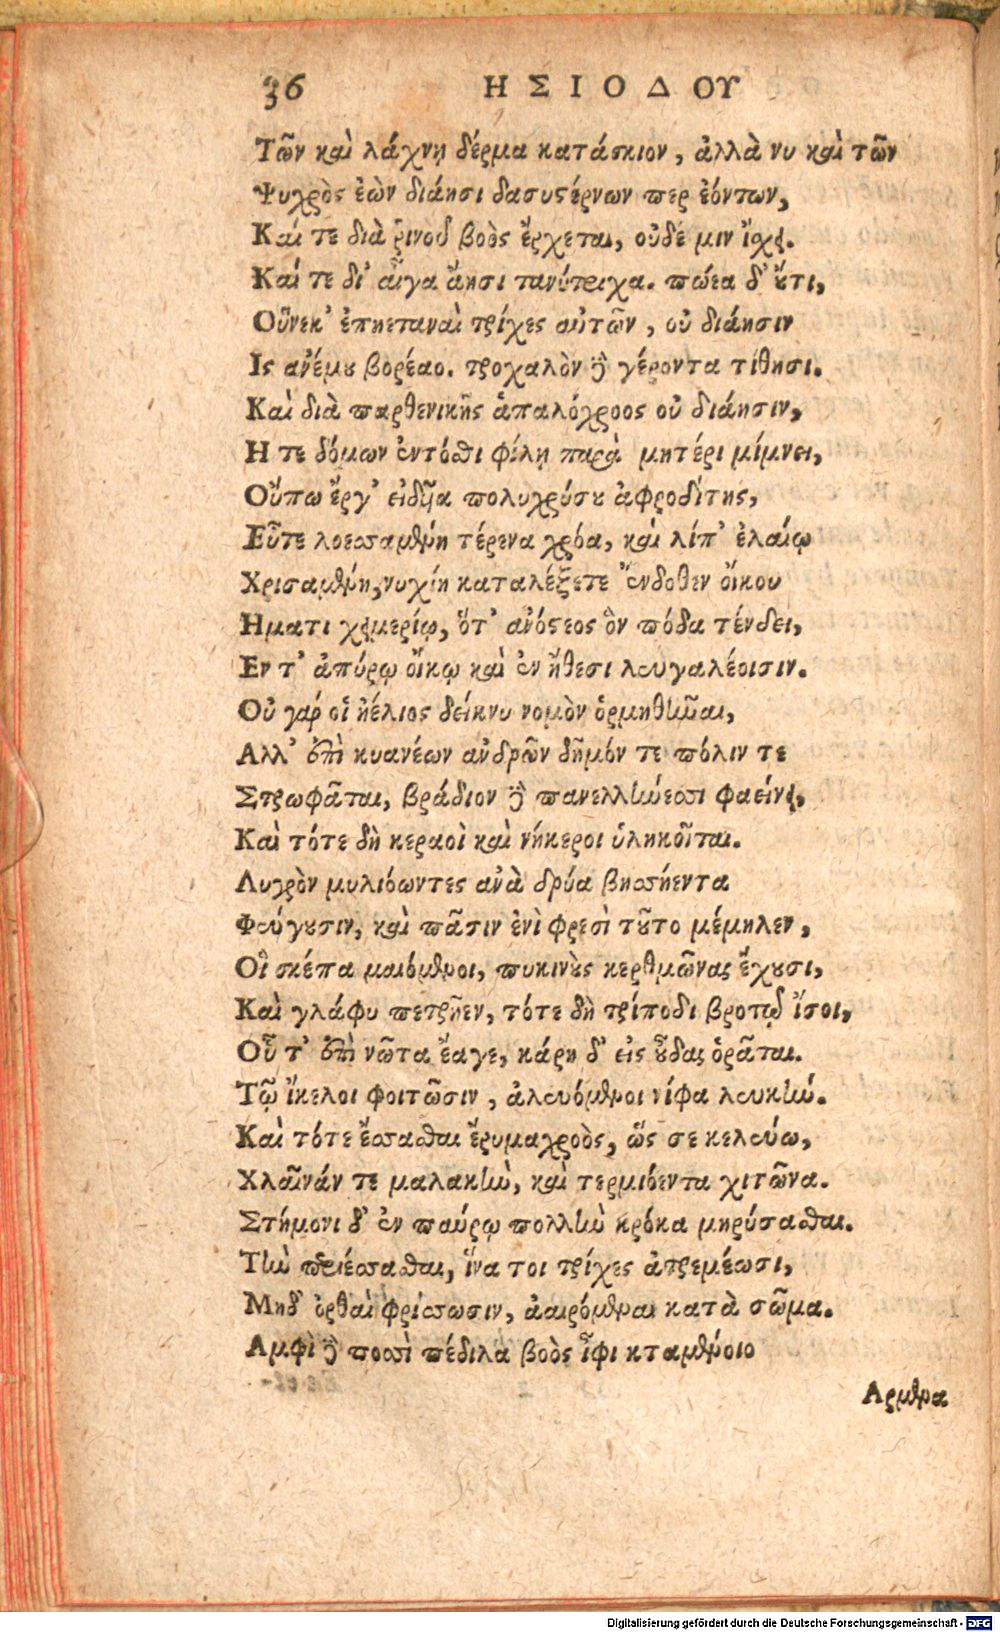 36 ΗΣΙΟΔΟΥ
Τῶν καὶ λάχνῃ δέρμα κατάσκιον, ἀλλὰ νυ καὶ τῶν
Ψυχρὸς ἐὼν διάησι δασυστέρνων περ ἐόντων,
Καί τε διὰ ῥινοῦ βοὸς ἔρχεται, οὐδέ μιν ἴσχει.
Καί τε δι' αἶγα ἄησι τανύτριχα. πώεα δ' ὔτι,
Οὕνεκ' ἐπηεταναὶ τρίχες αὐτῶν, οὐ διάησιν
Ις ἀνέμου βορέαο. τροχαλὸν δὲ γέροντα τίθησι.
Καὶ διὰ παρθενικῆς ἁπαλόχροος οὐ διάησιν,
Η τε δόμων ἐντόσθι φίλῃ παρὰ μητέρι μίμνει,
Οὔπω ἔργ' εἰδυῖα πολυχρύσου ἀφροδίτης,
Εὖτε λοεσσαμένη τέρενα χρόα, καὶ λίπ' ἐλαίῳ
Χρισαμένη, νυχίη καταλέξετε ἔνδοθεν οἴκου
Ηματι χειμερίῳ, ὅτ' ἀνόστεος ὃν πόδα τένδει,
Εν τ' ἀπύρῳ οἴκῳ καὶ ἐν ἤθεσι λευγαλέοισιν.
Οὐ γάρ οἱ ἠέλιος δείκνυ νομὸν ὁρμηθῆναι,
Αλλ' ἐπὶ κυανέων ἀνδρῶν δῆμόν τε πόλιν τε
Στρωφᾶται, βράδιον δὲ πανελλήνεσσι φαείνει,
Καὶ τότε δὴ κεραοὶ καὶ νήκεροι ὑληκοῖται.
Λυγρὸν μυλιόωντες ἀνὰ δρύα βησσήεντα
Φεύγουσιν, καὶ πᾶσιν ἐνὶ φρεσὶ τοῦτο μέμηλεν,
Οἳ σκέπα μαιόμενοι, πυκινοὺς κερθμῶνας ἔχουσι,
Καὶ γλάφυ πετρῆεν, τότε δὴ τρίποδι βροτῷ ἴσοι,
Οὗ τ' ἐπὶ νῶτα ἔαγε, κάρη δ' εἰς οὖδας ὁρᾶται.
Τῷ ἴκελοι φοιτῶσιν, ἀλευόμενοι νίφα λευκήν.
Καὶ τότε ἕσσασθαι ἔρυμαχροὸς, ὥς σε κελεύω,
Χλαῖνάν τε μαλακὴν, καὶ τερμιόεντα χιτῶνα.
Στήμονι δ' ἐν παύρῳ πολλὴν κρόκα μηρύσασθαι.
Τὴν περιέσσασθαι, ἵνα τοι τρίχες ἀτρεμέωσι,
Μηδ' ὀρθαὶ φρίσσωσιν, ἀειρόμεναι κατὰ σῶμα.
Αμφὶ δὲ ποσσὶ πέδιλα βοὸς ἶφι κταμένοιο
Αρμενα
Digitalisierung gefördert durch die Deutsche Forschungsgemeinschaft - DFG